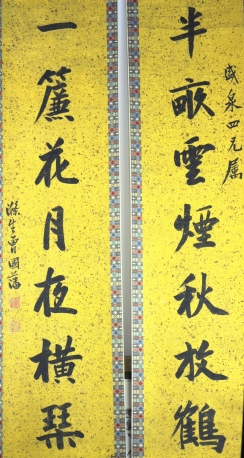 盛泉四兄属
半畝雲煙秋放鶴
一簾花月夜橫琴
滌生曾國藩